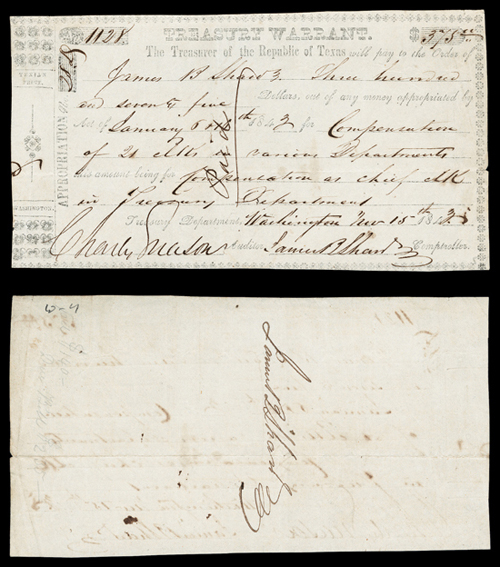 1128. TREASURY WARRANT. $375.00
The Treasurer of the Republic of Texas will pay to the Order of
James B Shaw Three hundred
and seventy five Dollars, out of any money appropriated by
Act of January 6th 1843 for Compensation
of various Departments
this amount being for Compensation as chief Clk
in Treasury Department
Treasury Department, Washington Nov 15th 1843
Charles Mason Auditor. James B Shaw Comptroller.
APPROPRIATION
Paid
W-4
James B Shaw